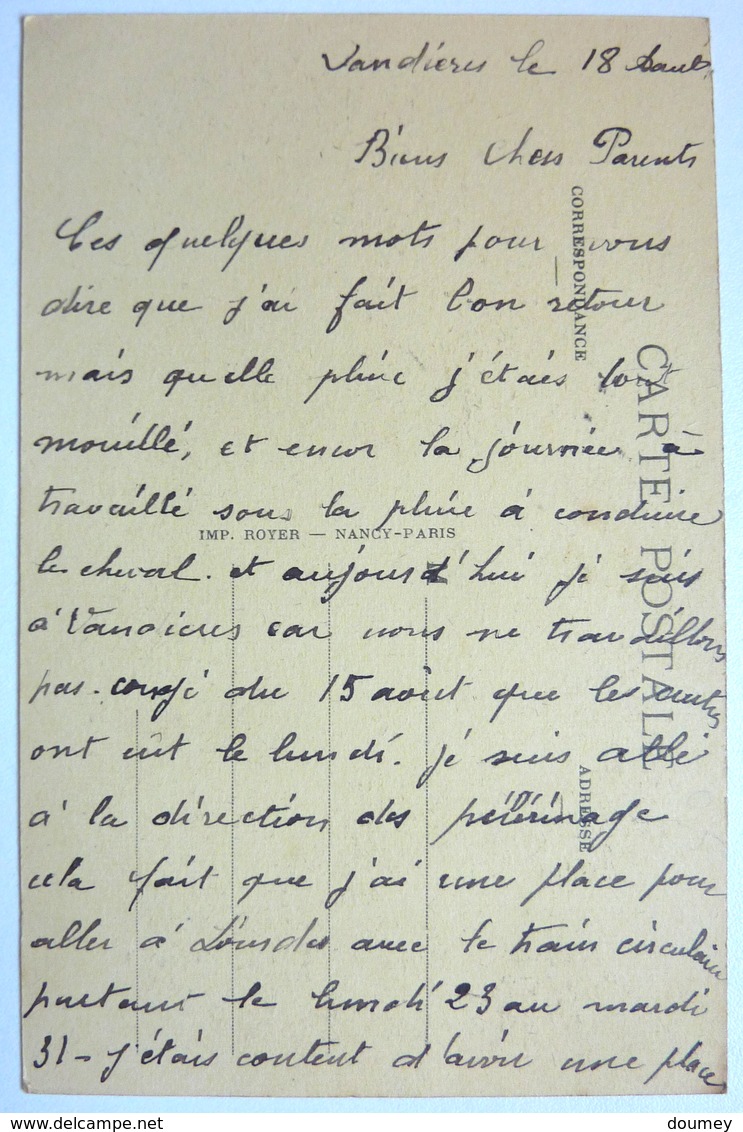 Vandières le 18 Août
Biens Chers Parents
Ces quelques mots pour vous
dire que j'ai fait bon retour
mais quelle pluie j'étais tout
mouillé, et encor la journée à
travaillé sous la pluie à conduire
le cheval. et aujourd'hui je suis
à Vandières car nous ne travaillons
pas. congé du 15 août que les autres
ont eût le lundi. je suis allé
à la direction des pélérinage
cela fait que j'ai une place pour
aller à Lourdes avec le train circulaire
partant le lundi 23 au mardi
31 - j'étais content d'avoir une place
CORRESPONDANCE
CARTE POSTALE
ADRESSE
IMP. ROYER — NANCY-PARIS
doumey